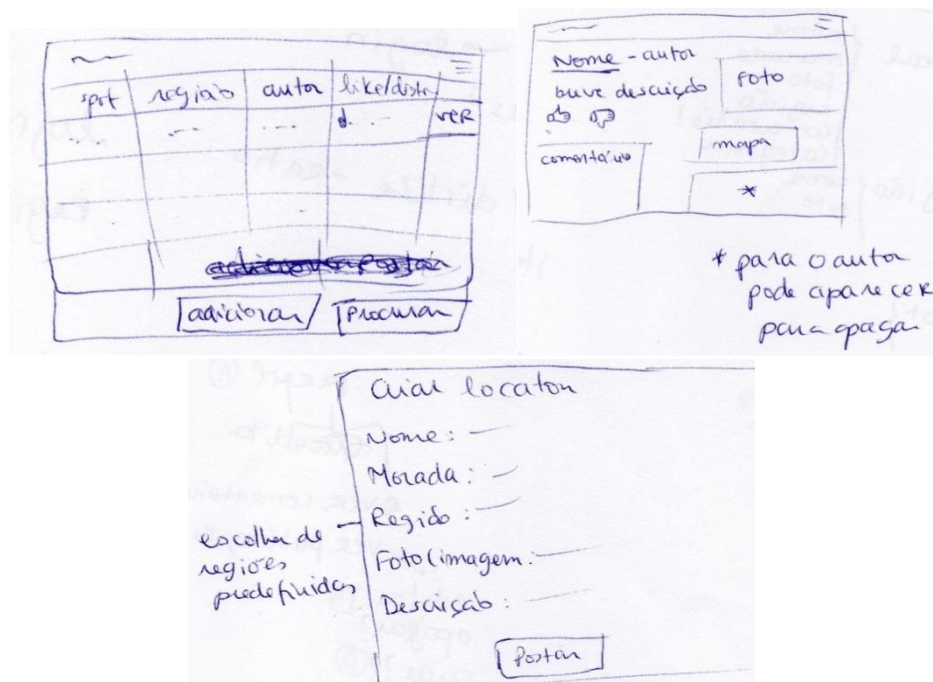 spot região autor like/dislik
ver
adicionar procurar
Nome - autor
breve descrição
foto
mapa
comentário
*
* para o autor
pode aparecer
para apagar
Criar locaton
Nome:
Morada:
Região:
Foto(imagem:
Descrição:
Postar
escolha de
regiões
predefinidas